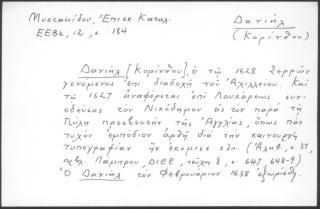 Μυστακίδου, Επισκ. Καταλ.
ΕΕΒΣ, 12, σ. 184
Δανιήλ
(Κορίνθου)
Δανιήλ [Κορίνθου], ὁ τῷ 1628 Σερρῶν
γενόμενος ἐπὶ διαδοχῇ τοῦ Ἀχιλλείου. Καὶ
τῷ 1627 ἀναφέρεται ἐπὶ Λουκάρεως συν-
οδεύσας τὸν Νικόδημον ὡς τὸν παρὰ τῇ
Πύλῃ πρεσβευτὴν τῆς Ἀγγλίας, ὅπως πᾶν
τυχὸν ἐμπόδιον ἀρθῇ διὰ τὴν καινουργῆ
τυπογραφίαν ἣν ἐκόμισε κλπ. (Ἀληθ., σ. 37,
πρβλ. Λάμπρου, ΔΙΕΕ, τεῦχ. 8, σ. 647, 648-9)
Ὁ Δανιὴλ τὸν Φεβρουάριον 1638 ἐξωρίσθη.